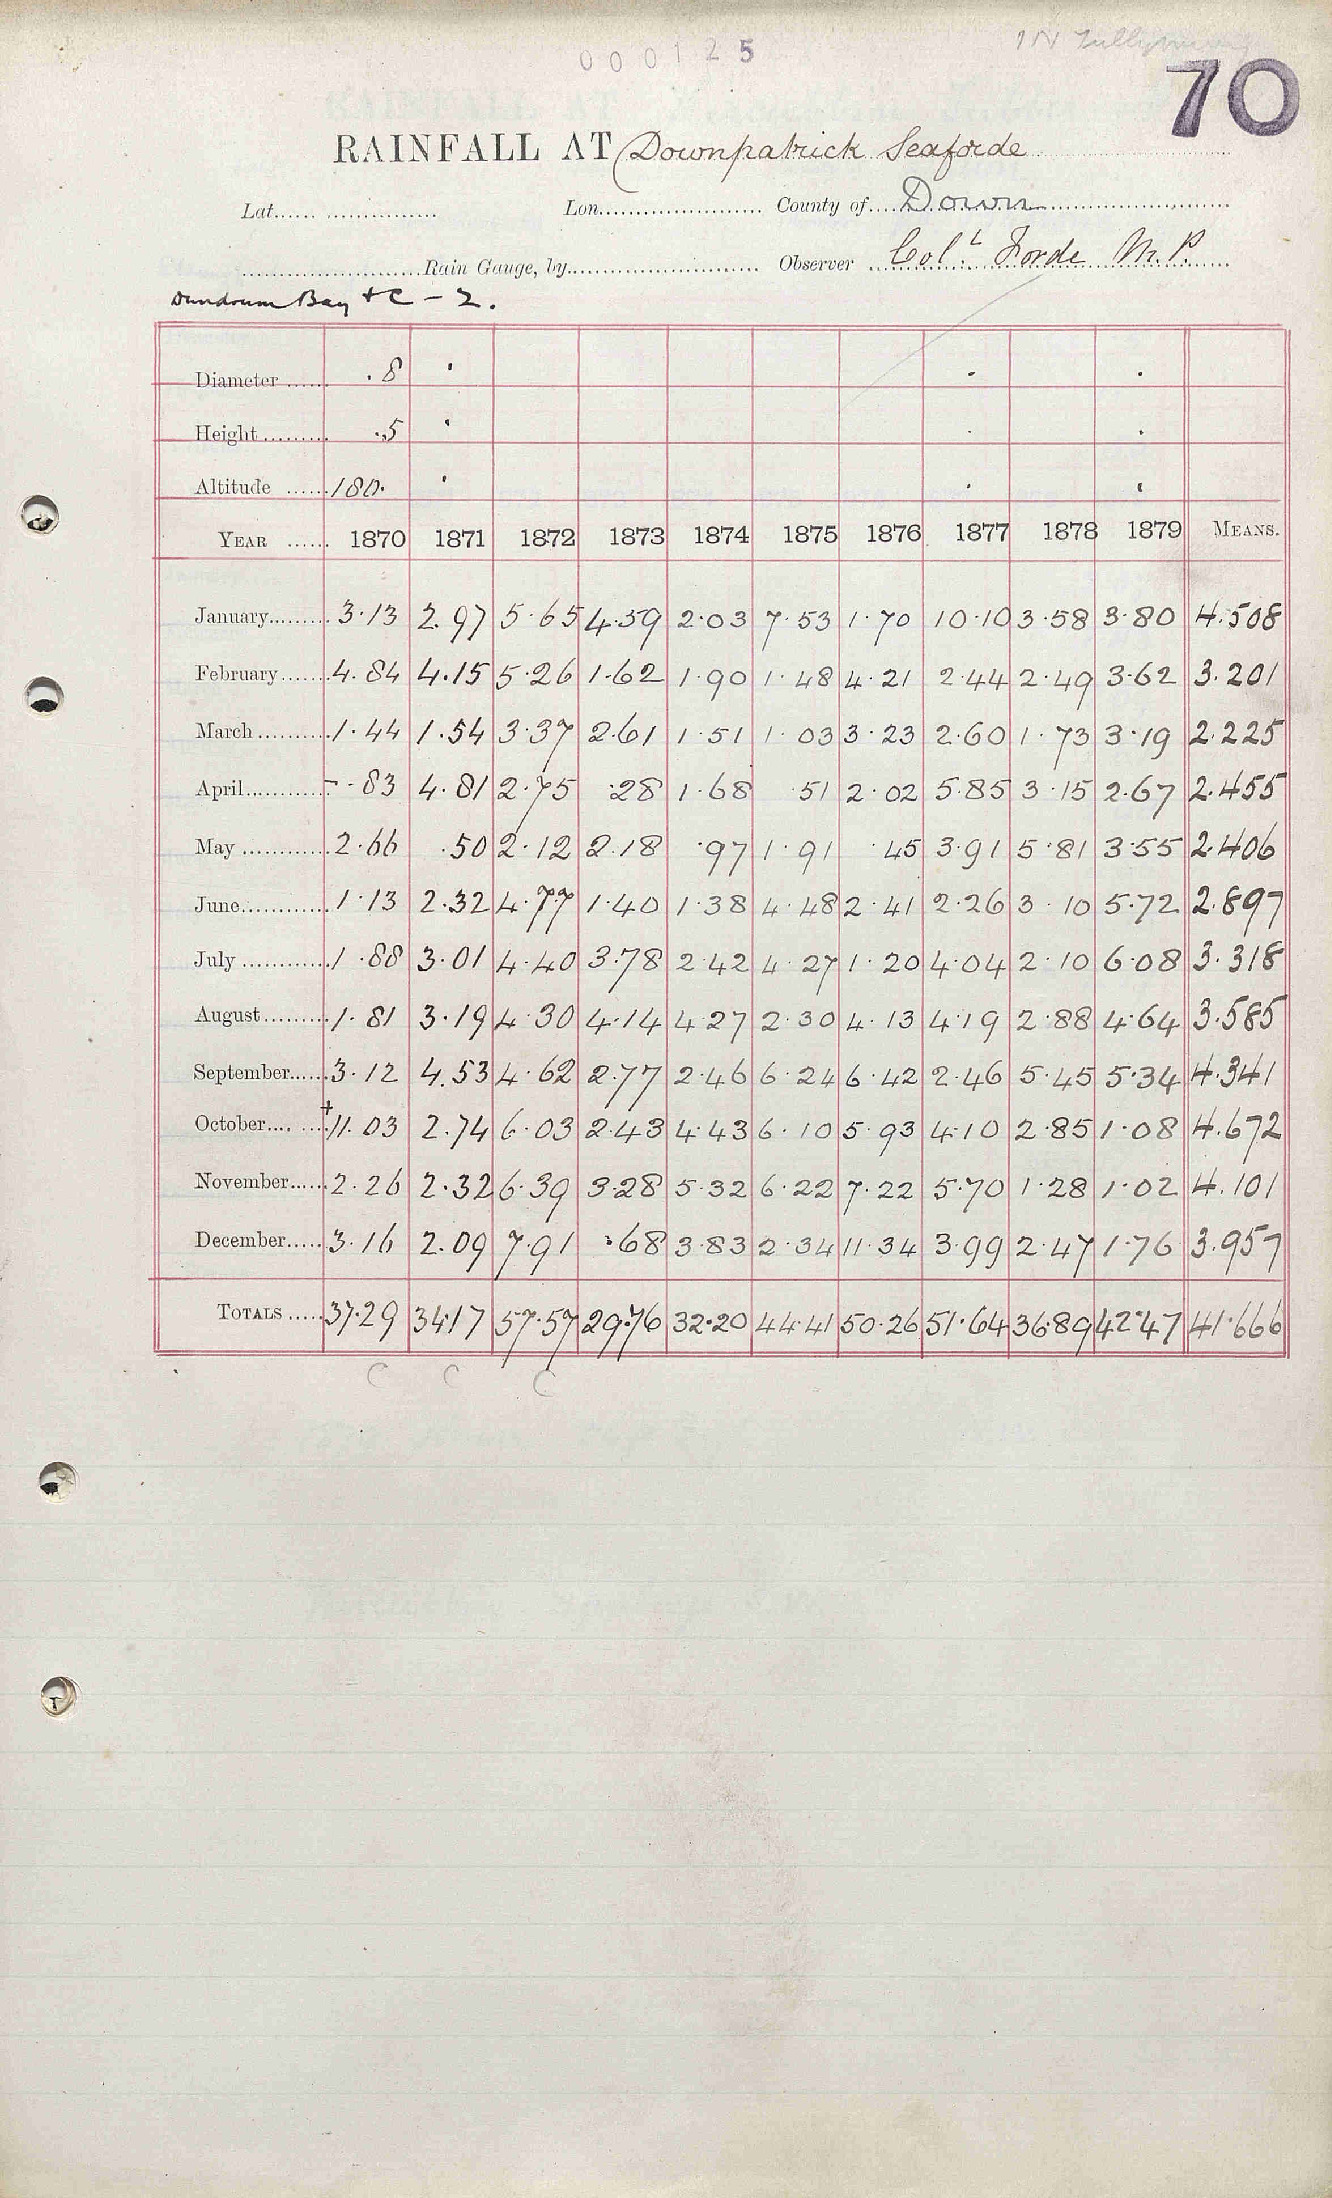 000125
70
RAINFALL AT Downpatrick Seaforde
Lat. Lon. County of Down
Rain Gauge, by Observer Col.L Forde M.P.
Dundrum Bay &C - 2.
Diameter .8
Height .5
Altitude 180.
YEAR 1870 1871 1872 1873 1874 1875 1876 1877 1878 1879 MEANS.
January 3.13 2.97 5.65 4.59 2.03 7.53 1.70 10.10 3.58 3.80 4.508
February 4.84 4.15 5.26 1.62 1.90 1.48 4.21 2.44 2.49 3.62 3.201
March 1.44 1.54 3.37 2.61 1.51 1.03 3.23 2.60 1.73 3.19 2.225
April - .83 4.81 2.75 .28 1.68 .51 2.02 5.85 3.15 2.67 2.455
May 2.66 .50 2.12 2.18 .97 1.91 .45 3.91 5.81 3.55 2.406
June 1.13 2.32 4.77 1.40 1.38 4.48 2.41 2.26 3.10 5.72 2.897
July 1.88 3.01 4.40 3.78 2.42 4.27 1.20 4.04 2.10 6.08 3.318
August 1.81 3.19 4.30 4.14 4.27 2.30 4.13 4.19 2.88 4.64 3.585
September 3.12 4.53 4.62 2.77 2.46 6.24 6.42 2.46 5.45 5.34 4.341
October +11.03 2.74 6.03 2.43 4.43 6.10 5.93 4.10 2.85 1.08 4.672
November 2.26 2.32 6.39 3.28 5.32 6.22 7.22 5.70 1.28 1.02 4.101
December 3.16 2.09 7.91 .68 3.83 2.34 11.34 3.99 2.47 1.76 3.957
TOTALS 37.29 34.17 57.57 29.76 32.20 44.41 50.26 51.64 36.89 42.47 41.666
C C C